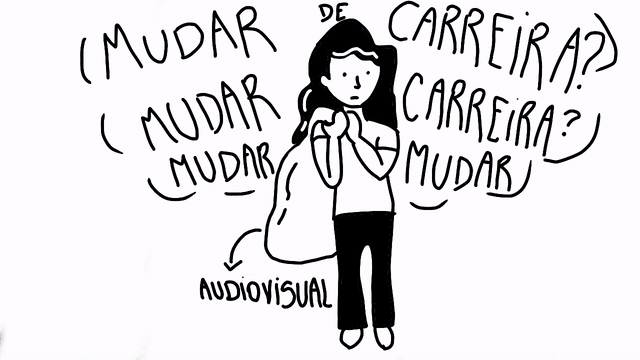 (MUDAR DE CARREIRA?)
(MUDAR CARREIRA?)
(MUDAR MUDAR)
AUDIOVISUAL